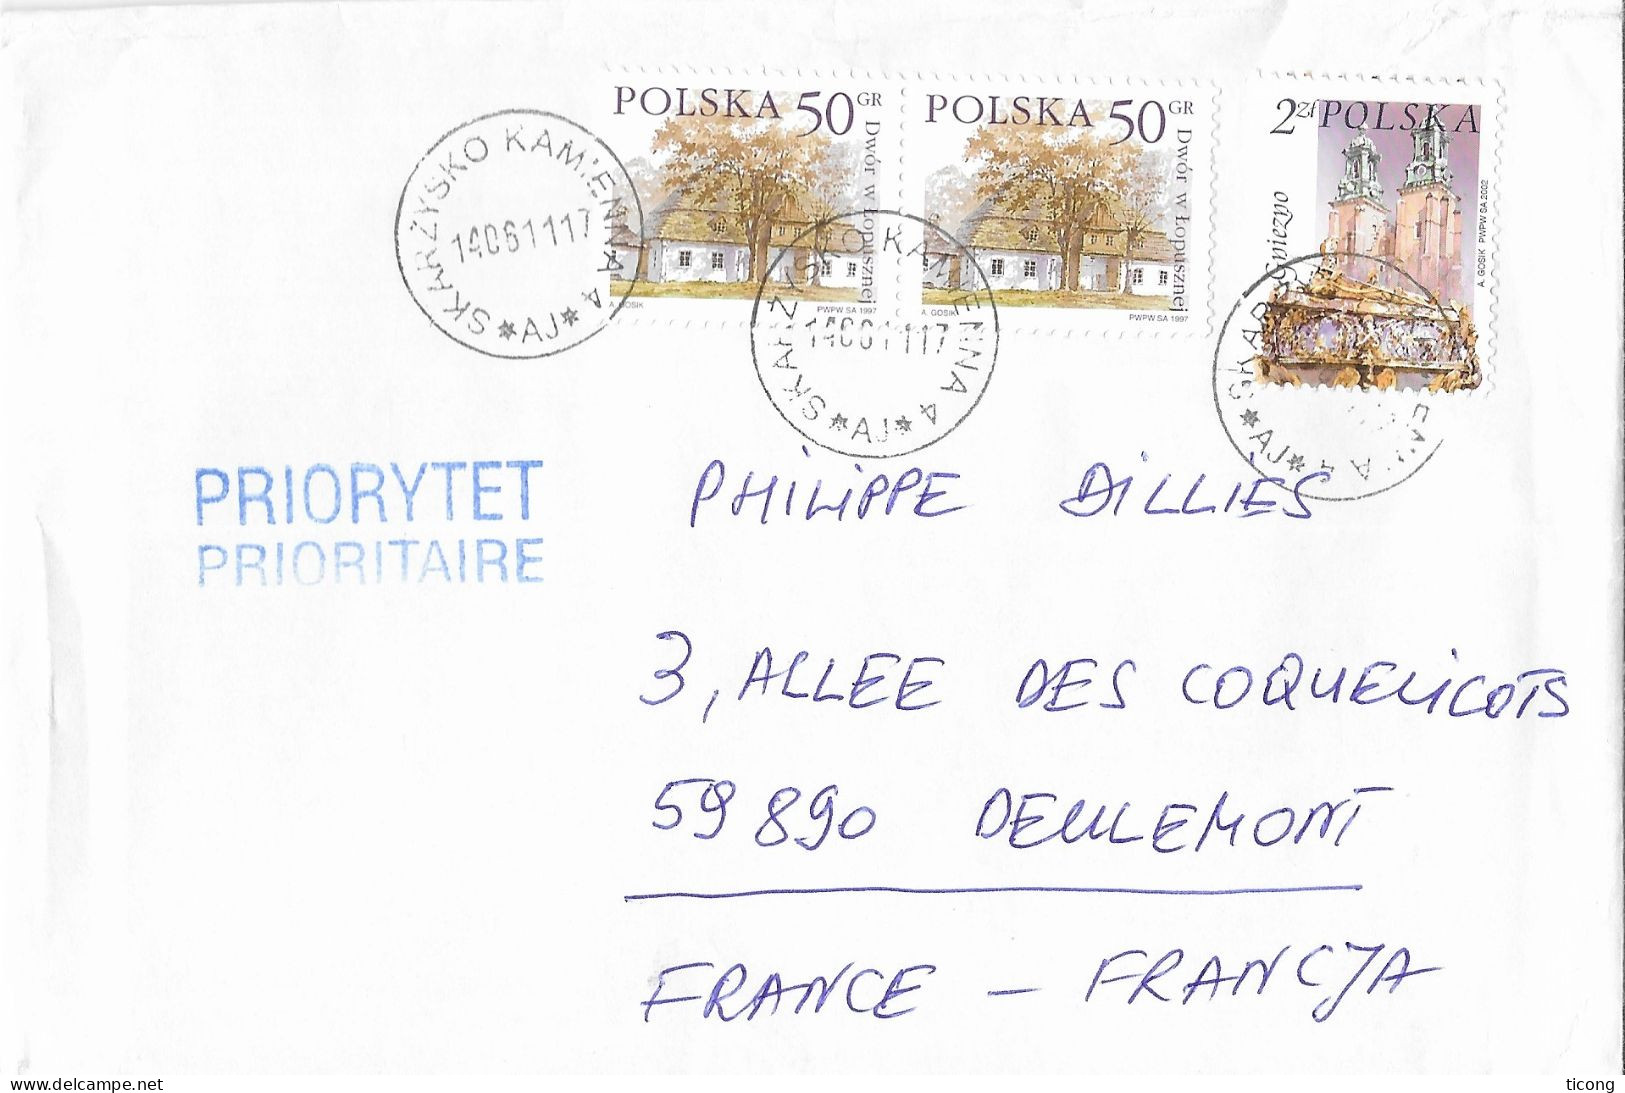 POLSKA 50 GR
Dwór w Łopusznej
A. GOSIK
PWPW SA 1997
POLSKA 50 GR
Dwór w Łopusznej
A. GOSIK
PWPW SA 1997
2 zł POLSKA
Gniezno
A. GOSIK PWPW SA 2002
SKARŻYSKO KAMIENNA 4
14061117
*AJ*
SKARŻYSKO KAMIENNA 4
14061117
*AJ*
*AJ*
PRIORYTET
PRIORITAIRE
PHILIPPE DILLIES
3, ALLEE DES COQUELICOTS
59890 DEULEMONT
FRANCE – FRANCJA
www.delcampe.net
ticong